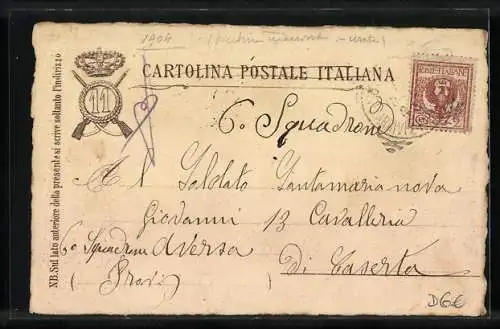 1904
CARTOLINA POSTALE ITALIANA
POSTE ITALIANE
11
6º Squadrone
Al Soldato Santamaria nova
Giovanni 13 Cavalleria
6º Squadrone Aversa
(Prov.) Di Caserta
NB. Sul lato anteriore della presente si scrive soltanto l'indirizzo
D6€